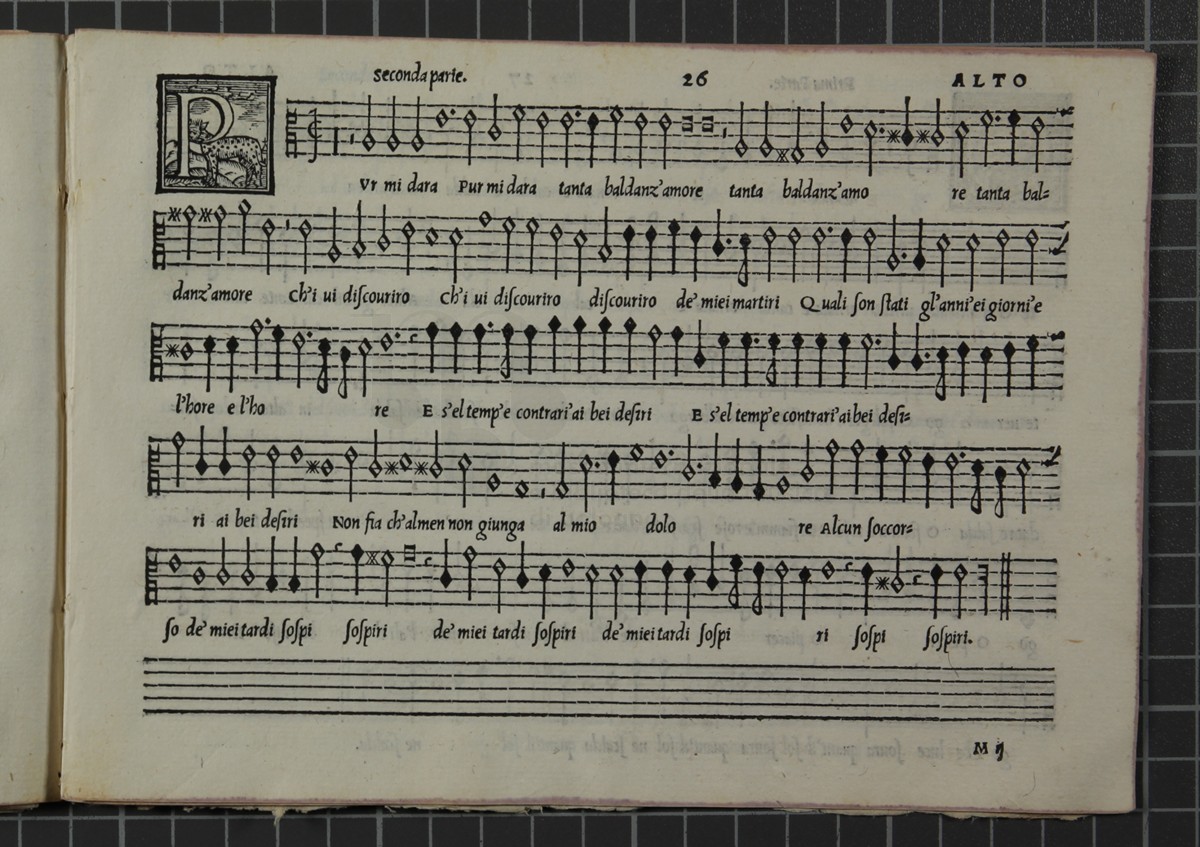 Seconda parte. 26 ALTO
PVr mi dara Pur mi dara tanta baldanz'amore tanta baldanz'amo re tanta bal=
danz'amore ch'i ui diſcouriro ch'i ui diſcouriro diſcouriro de' miei martiri Quali ſon ſtati gl'anni'ei giorni'e
l'hore e l'ho re E s'el temp'e contrari'ai bei deſiri E s'el temp'e contrari'ai bei deſi=
ri ai bei deſiri Non fia ch'almen non giunga al mio dolo re Alcun ſoccor=
ſo de' miei tardi ſoſpi ſoſpiri de' miei tardi ſoſpiri de' miei tardi ſoſpi ri ſoſpi ſoſpiri.
M ij